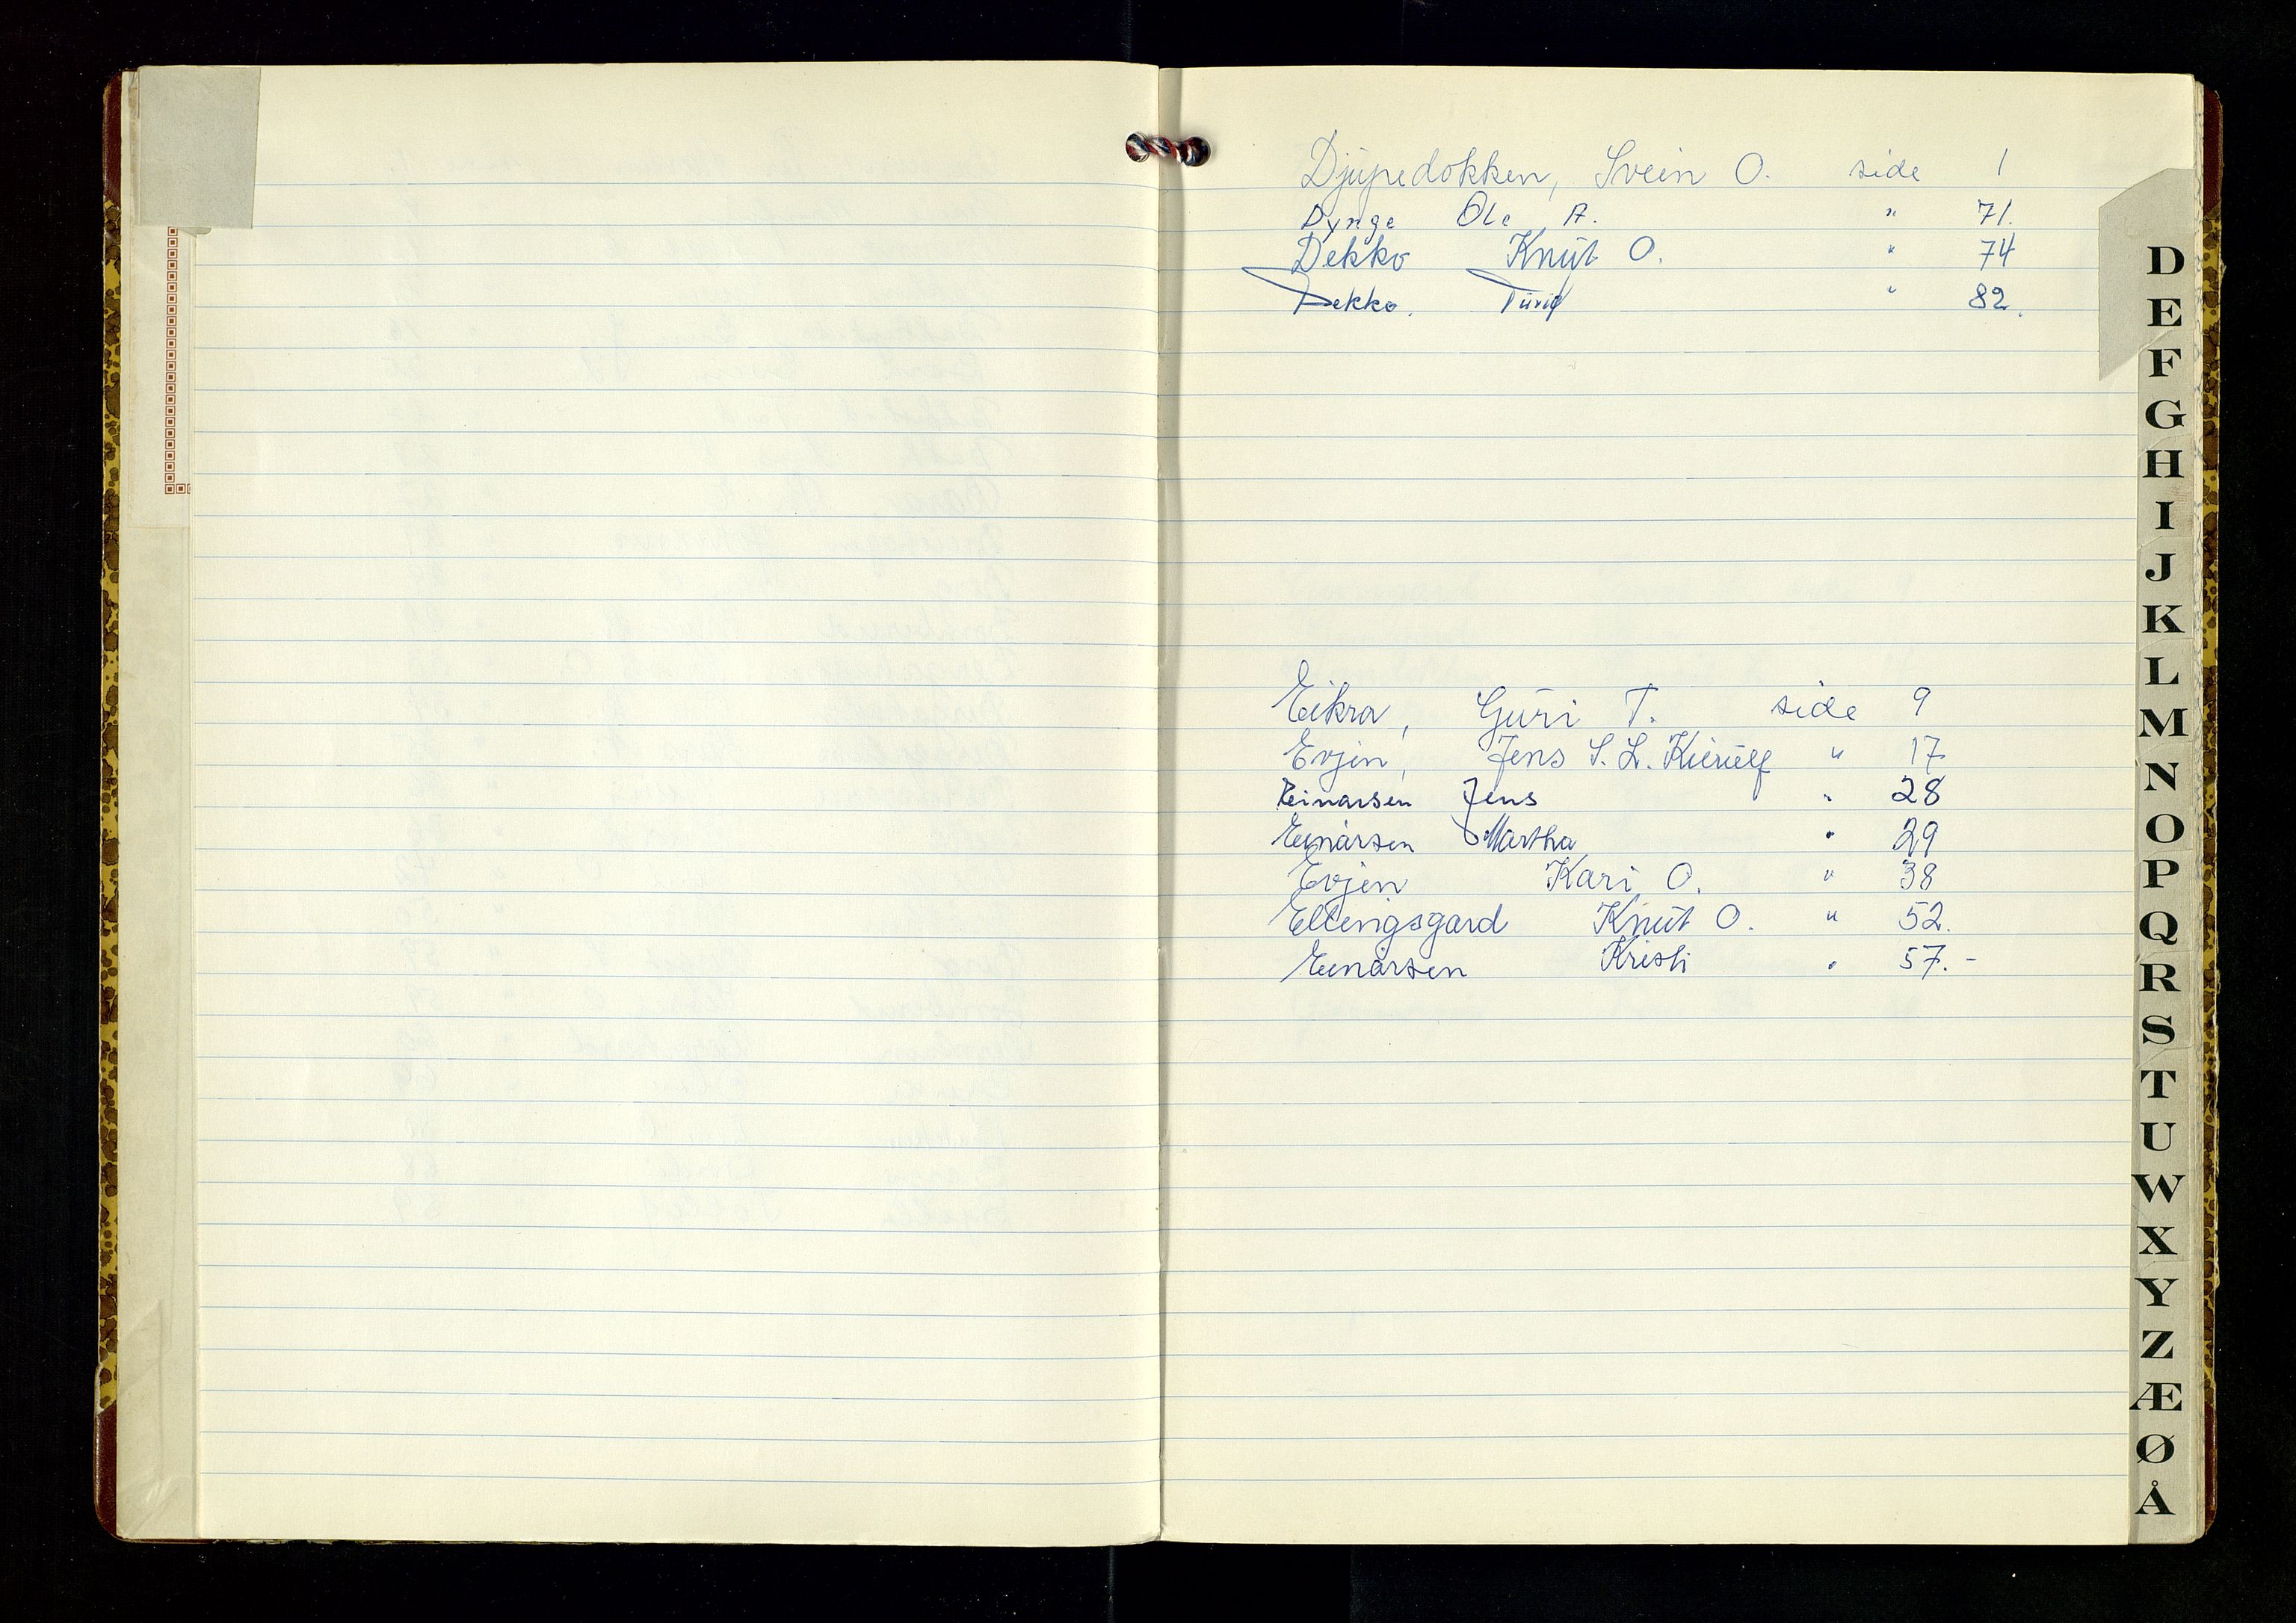 Djupedokken, Svein O. side 1
Dynge Ole A. " 71.
Dekko Knut O. " 74
Dekko. Turid " 82.
Eikra, Guri T. side 9
Evjen, Jens S. L. Kierulf " 17
Einarsen Jens " 28
Einarsen Martha " 29
Evjen Kari O. " 38
Ellingsgard Knut O. " 52.
Einarsen Kristi " 57.-
D
E
F
G
H
I
J
K
L
M
N
O
P
Q
R
S
T
U
W
X
Y
Z
Æ
Ø
Å